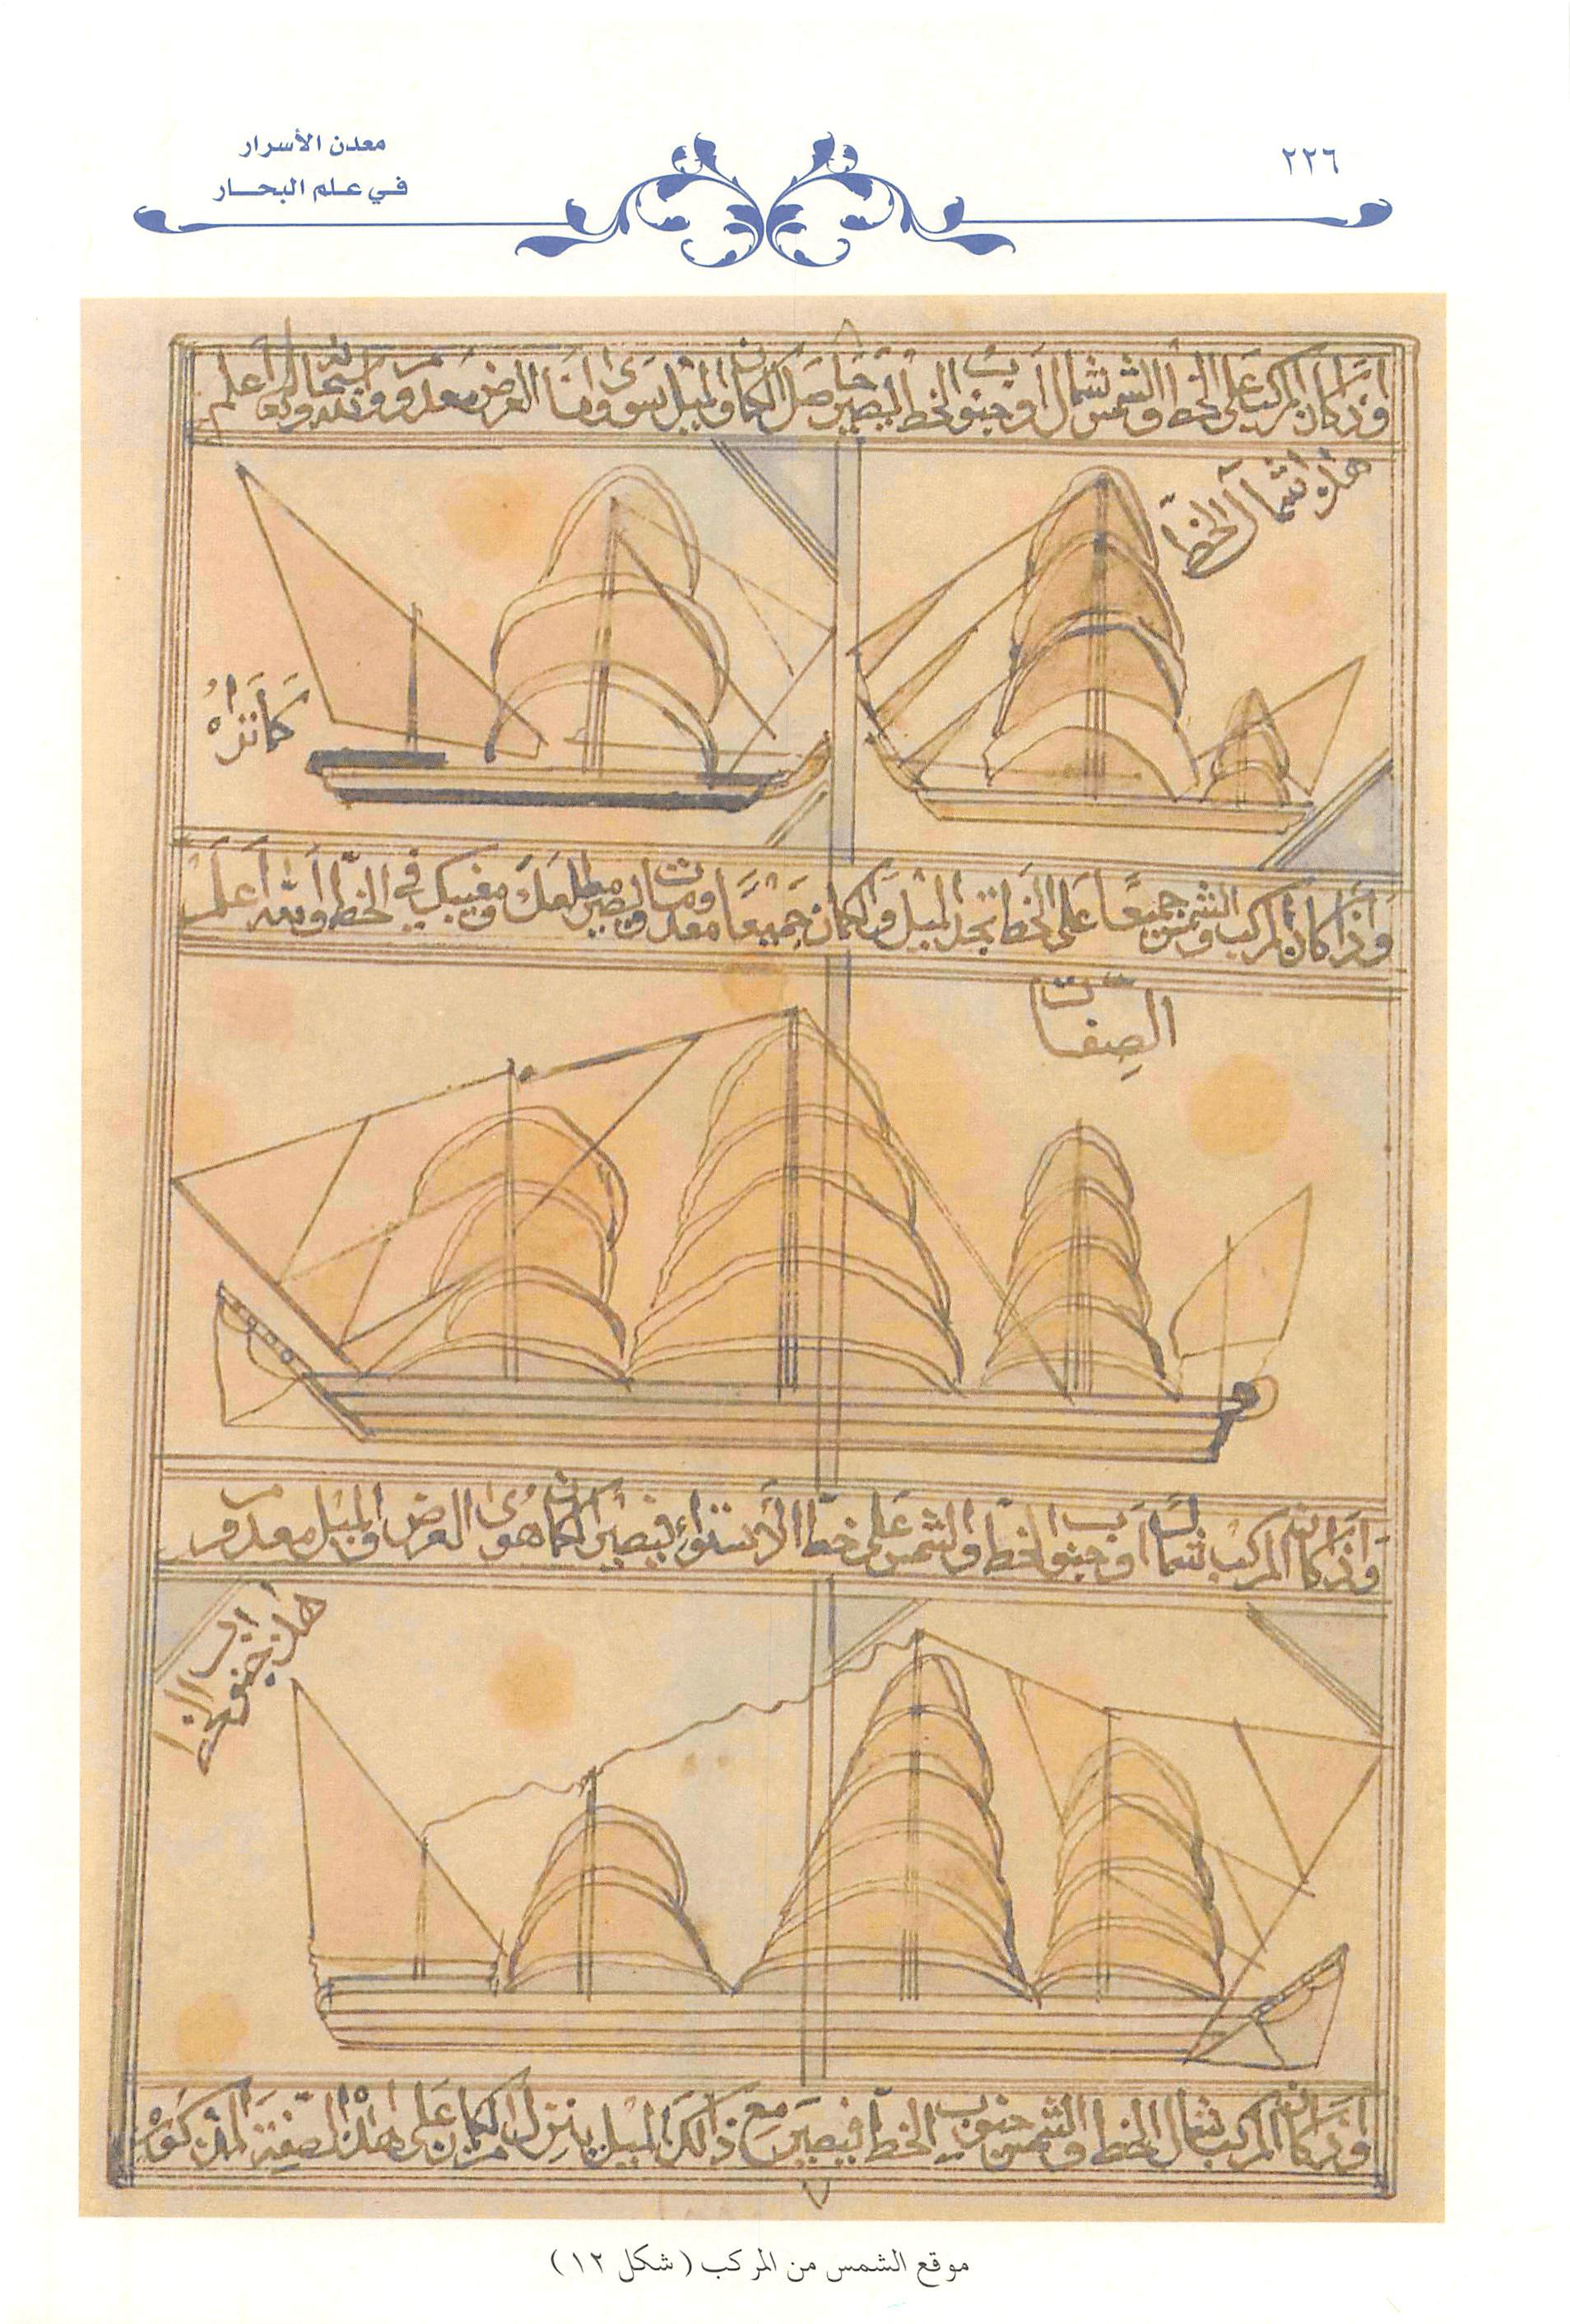 ٢٢٦
معدن الأسرار
في علم البحار
وإذا كان المركب على الخط والشمس شمال أو جنوب الخط ليصير حاصل الكمان والميل سوى وأما العرض معدوم والله سبحانه وتعالى أعلم
هذا شمال الخط
وإذا كان المركب والشمس جميعًا على الخط تجد الميل والكمان جميعًا معدومات ويصير مطلعك ومغيبك في الخط والله أعلم
الصفات
وإذا كان المركب شمالًا أو جنوب الخط والشمس على خط الاستواء فيصير الكمان هو العرض والميل معدوم
هذا جنوب
وإذا كان المركب شمال الخط والشمس جنوب الخط فيصير مع ذالك الميل ينزل من الكمان على هذا الصفة المذكور
موقع الشمس من المركب (شكل ١٢)